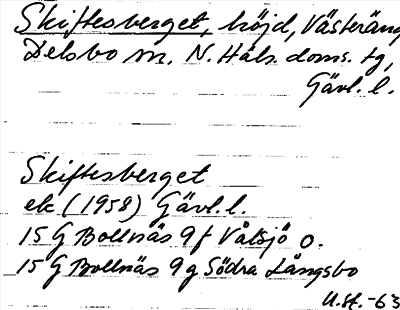 Skiftesberget, höjd, Västeräng
Delsbo sn. N. Häls. doms. tg,
Gävl. l.
Skiftesberget
ek (1958) Gävl. l.
15 G Bollnäs 9 f Välsjö o.
15 G Bollnäs 9 g Södra Långsbo
U.H. -63